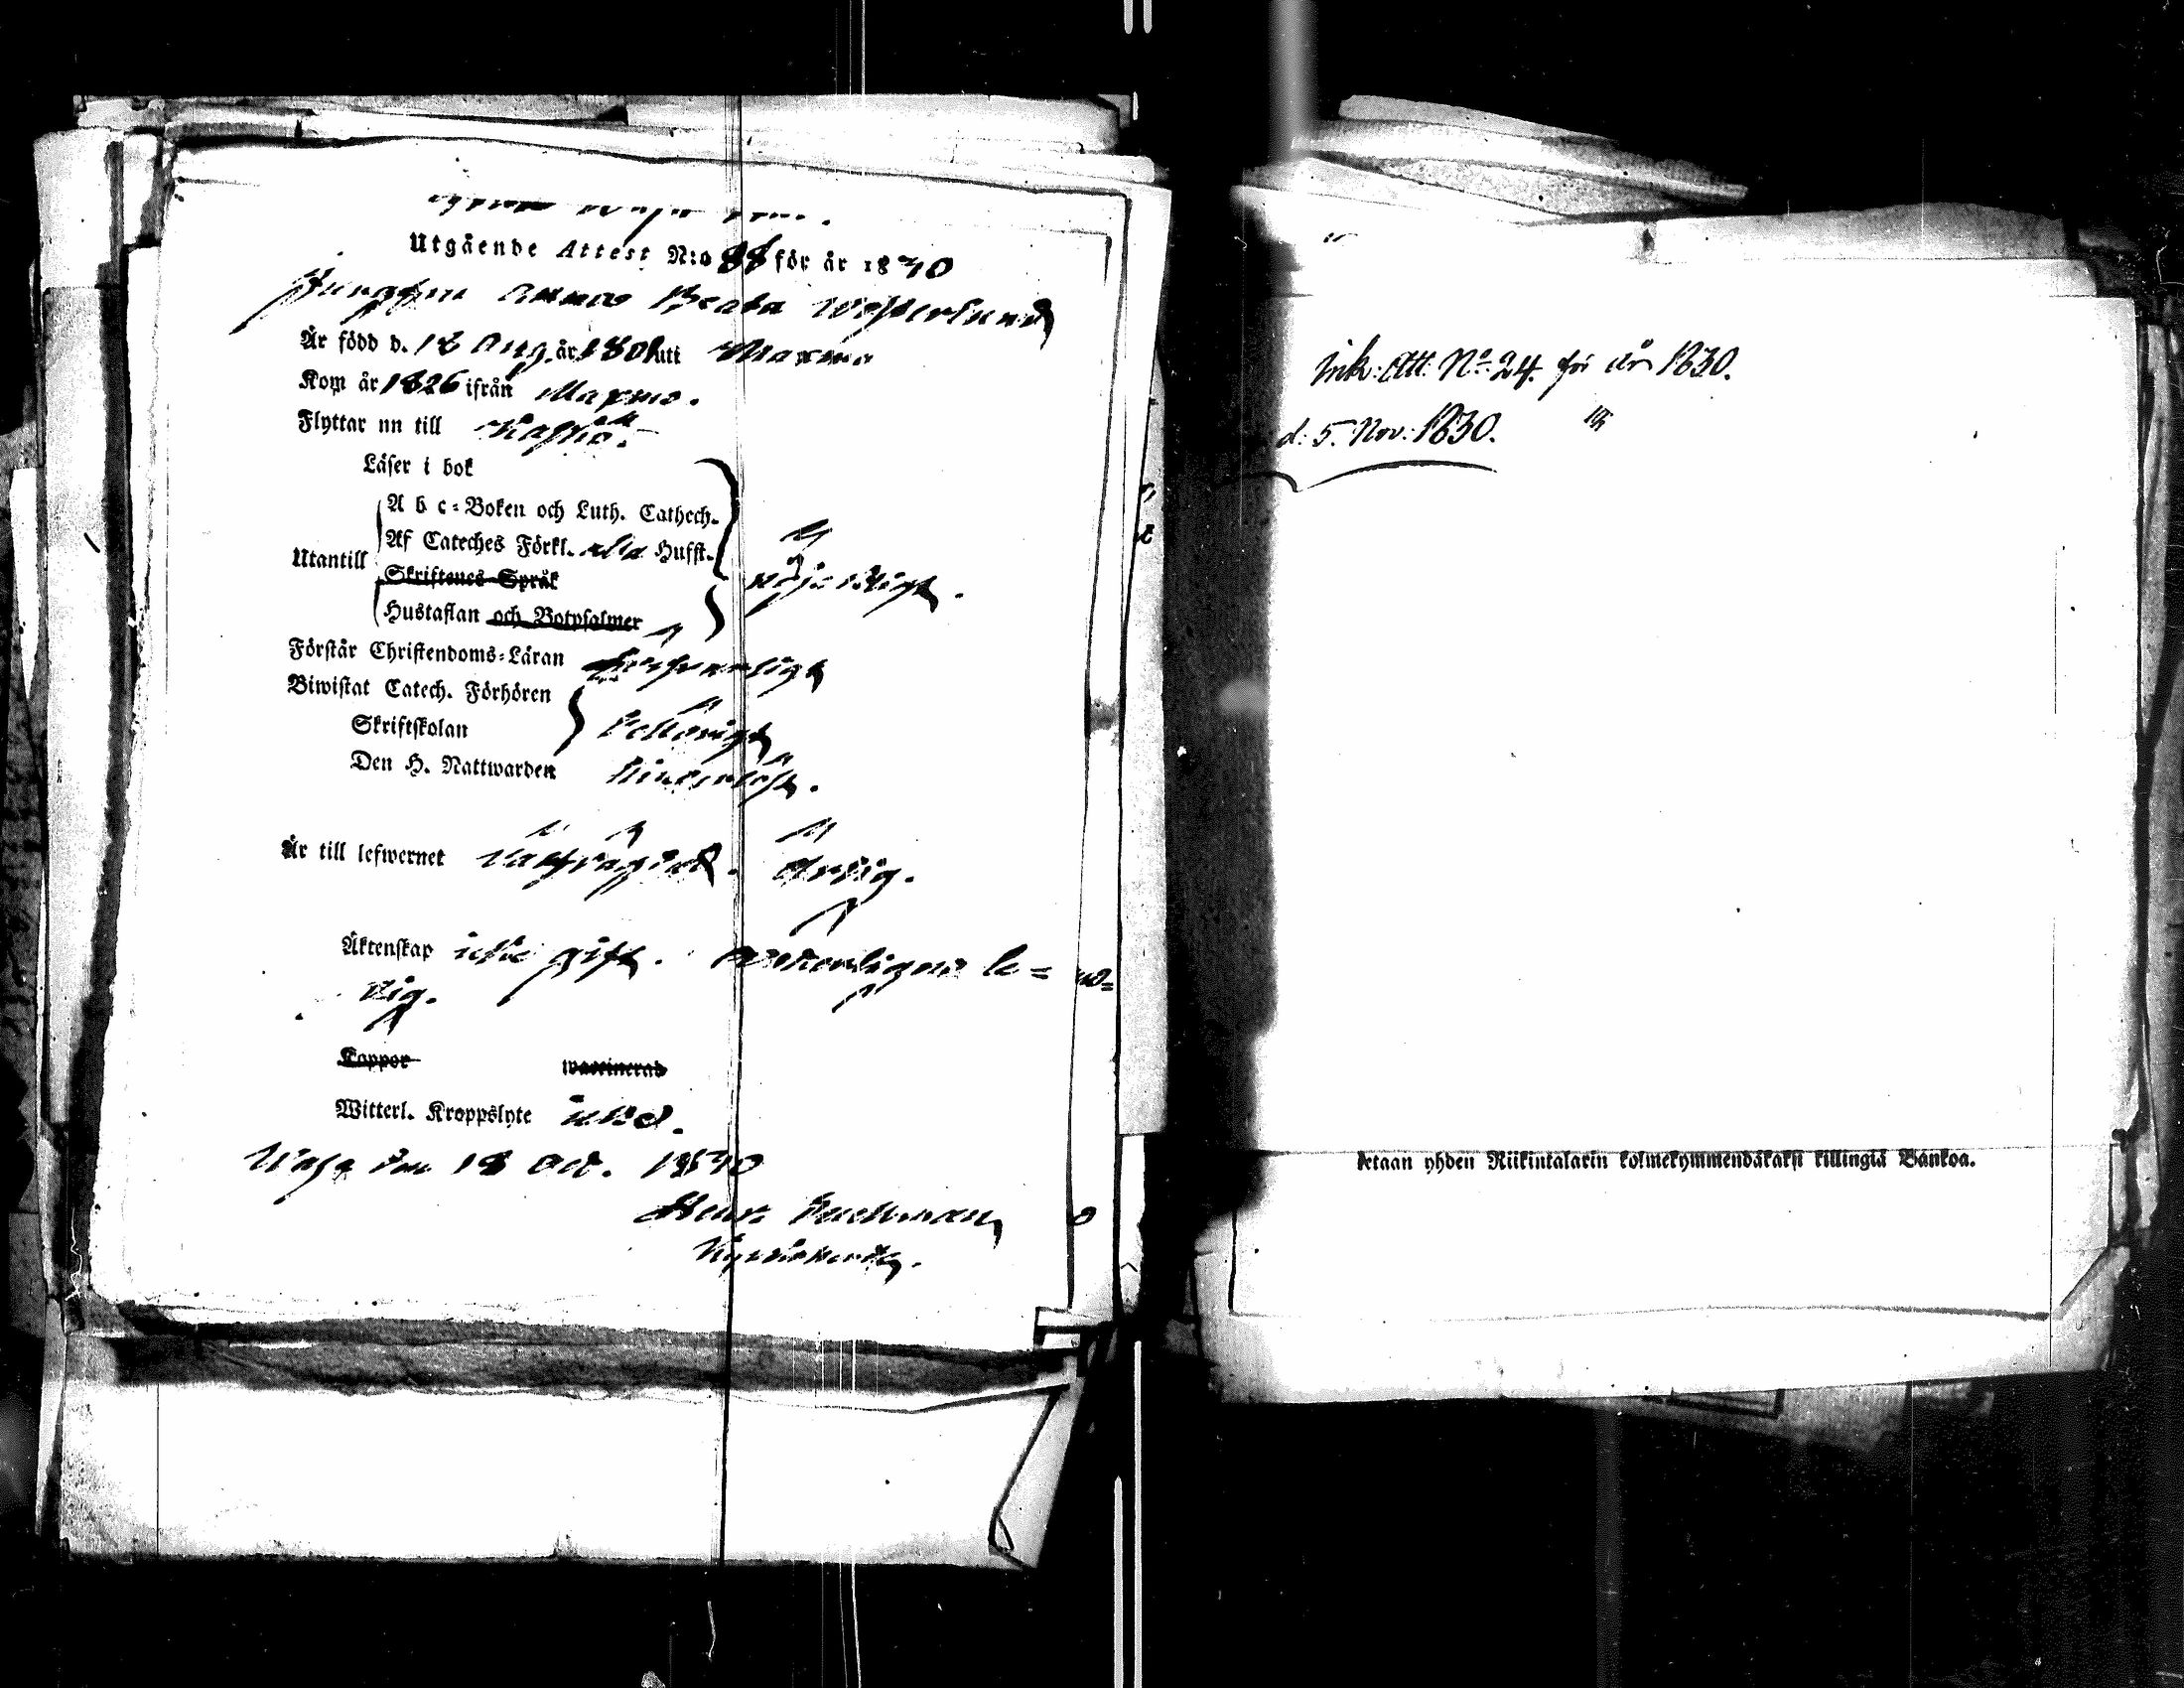 Utgående Attest N:o 88 för år 1830
Jungfru Anna Beata Westerlund
Är född d. 18 Aug. år 1801 uti Maxmo
Kom år 1826 ifrån Maxmo.
Flyttar nu till Kaskö.
Läser i bok
A b c-Boken och Luth. Cathech.
Utantill Af Cateches Förkl. alla Husst.
Skriftenes Språk
nöjaktigt.
Hustaflan och Botpsalmer
Förstår Christendoms-Läran försvarligt
Biwistat Catech. Förhören
Skriftskolan behörigt
Den H. Nattwarden
Är till lefwernet välfräjdad. Ärlig.
Äktenskap icke gift. le=
dig.
Koppor waccinerad
Witterl. Kroppslyte icke.
Wasa den 18 Oct. 1830
Henr. Backman
Ink: Att: No. 24. för år 1830.
d: 5. Nov: 1830.
detaan yhden Riikintalarin kolmekymmendäkaksi killingiä Bankoa.